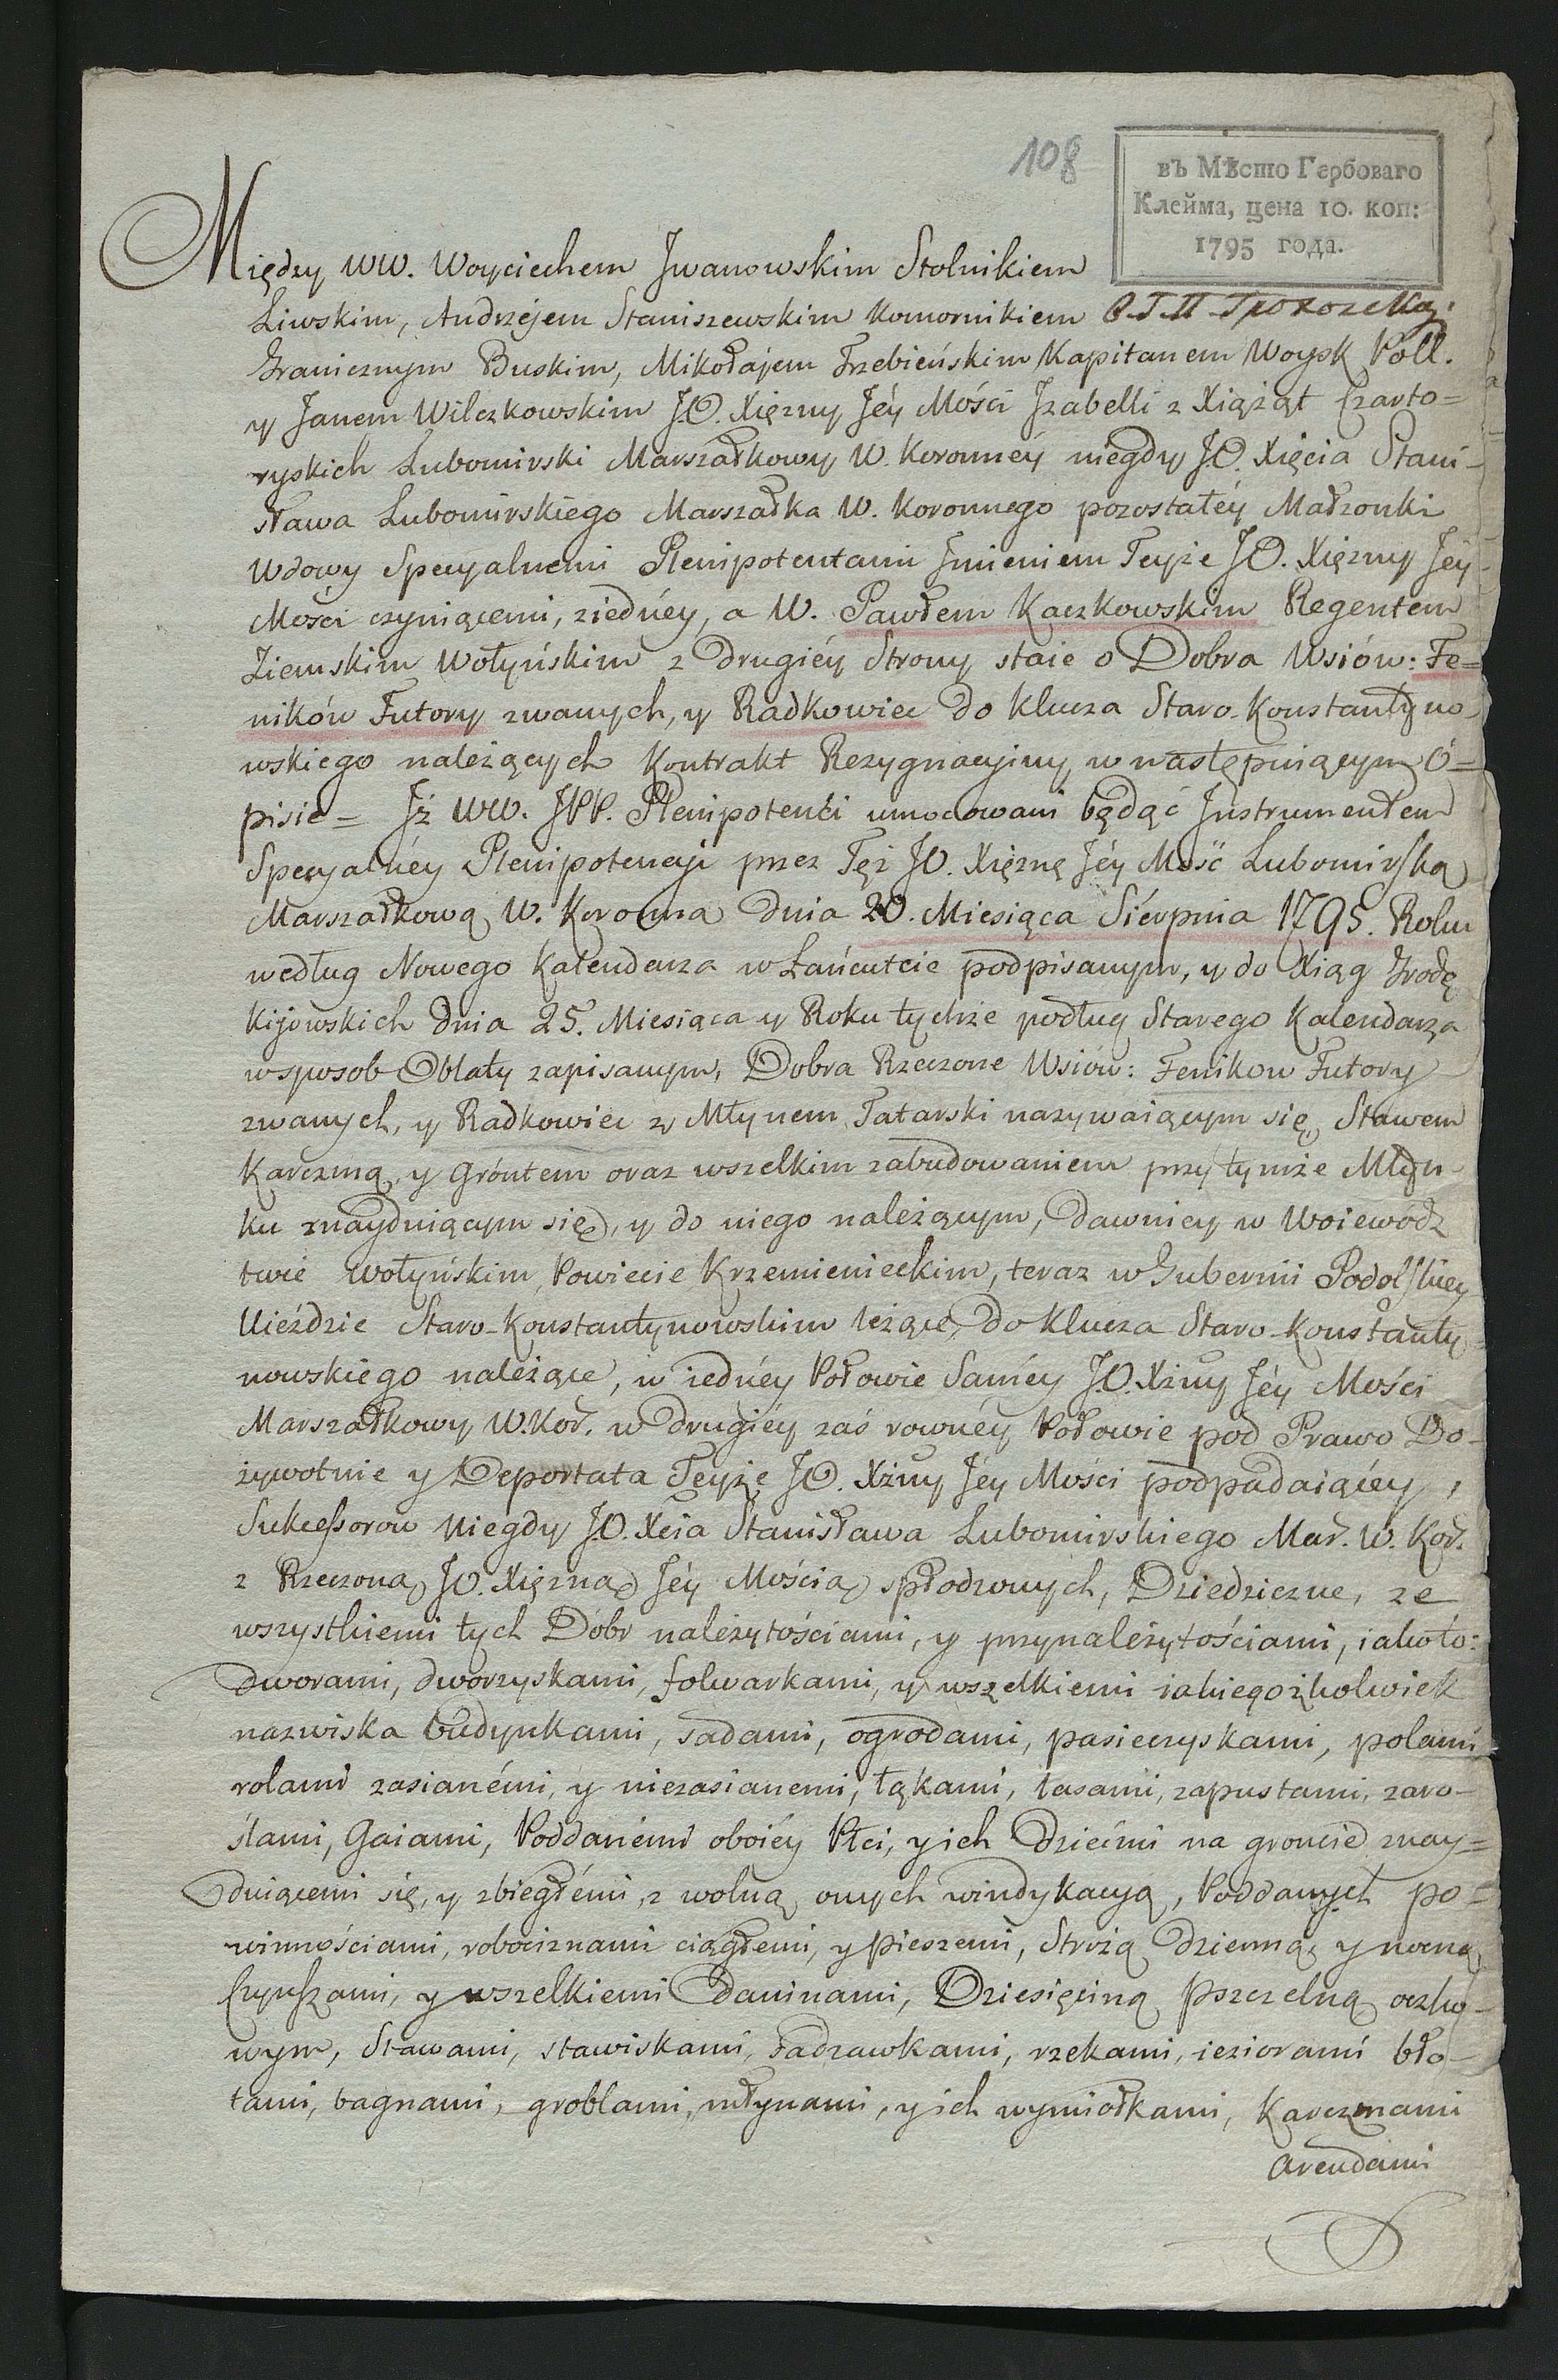 108
въ Мѣсто Гербоваго
Клейма, цена 10. коп:
1795 года.
Między WW. Woyciechem Jwanowskim Stolnikiem
Liwskim, Andrzejem Staniszewskim Komornikiem
Granicznym Buskim, Mikołajem Trzebieńskim Kapitanem Woysk Poll.
y Janem Wilczkowskim J.O. Xięzny Jéy Mości Jzabelli z Xiążąt Czarto=
ryskich Lubomirski Marszałkowy W. Koronnéy niegdy J.O. Xięcia Stani-
sława Lubomirskiego Marszałka W. Koronnego pozostałéy Małzonki
Wdowy Specyalnemi Plenipotentami Jmieniem Teyże JO. Xięzny Jéy
Mości czyniącemi, ziednéy, a W. Pawłem Kaczkowskim Regentem
Ziemskim Wołyńskim z Drugiéy Strony staie o Dobra Wsiów: Fe=
ników Futory zwanych, y Radkowiec do Klucza Staro-Konstantyno-
wskiego należących Kontrakt Rezygnacyiny w następuiącym O=
pisie= Jż WW. JPP. Plenipotenci umocowani będąć Jnstrumentem
Specyalnéy Plenipotencyi przez Tęż JO. Xięznę Jéy Mość Lubomirską
Marszałkową W. Koronna Dnia 20. Miesiąca Sierpnia 1795. Roku
według Nowego Kalendarza w Łańcutcie podpisanym, y do Xiąg Grodz.
Kijowskich Dnia 25. Miesiąca y Roku tychże podług Starego Kalendarza
wsposob Oblaty zapisanym, Dobra Rzeczone Wsiów: Fenikow Futory
zwanych, y Radkowiec z Młynem Tatarski nazywaiącym się, Stawem
Karczmą, y Gróntem oraz wszelkim zabudowaniem przy tymże Młyn-
ku znayduiącym się, y do niego należącym, Dawniey w Woiewódz
twie Wołyńskim Powiecie Krzemienieckim, teraz w Gubernii Podolskiey
Uieździe Staro-Konstantynowskim leżące, Do Klucza Staro-Konstanty-
nowskiego należące, w iednéy Połowie Saméy J.O. Xżny Jéy Mości
Marszałkowy W. Kor. w Drugiéy zaś rownéy Połowie pod Prawo Do-
żywotnie y Deportata Teyże JO. Xżny Jéy Mości podpadaiącéy,
Sukcessorow Niegdy J.O. Xcia Stanisława Lubomirskiego Mar. W. Kor.
z Rzeczoną JO. Xięzną Jéy Mościa spłodzonych, Dziedziczne, ze
wszystkiemi tych Dóbr należytościami, y przynależytościami, iakoto:
Dworami, dworzyskami, folwarkami, y wszelkiemi iakiegożkolwiek
nazwiska budynkami, sadami, ogrodami, pasieczyskami, polami
rolami zasianémi, y niezasianemi, łąkami, lasami, zapustami, zaro-
ślami, Gaiami, Poddanémi oboiéy Płci, y ich Dziećmi na groncie znay=
duiącemi się, y zbiegłémi, z wolną onych windykacyą, Poddanych po=
winnościami, robociznami ciągłemi, y pieszemi, Strożą Dzienną y nocną,
Czynszami, y wszelkiemi Daninami, Dziesięciną Pszczelną oczko-
wym, Stawami, stawiskami, Sadzawkami, rzekami, ieziorami bło-
tami, bagnami, groblami, młynami, y ich wymiołkami, Karczmami
Arendami